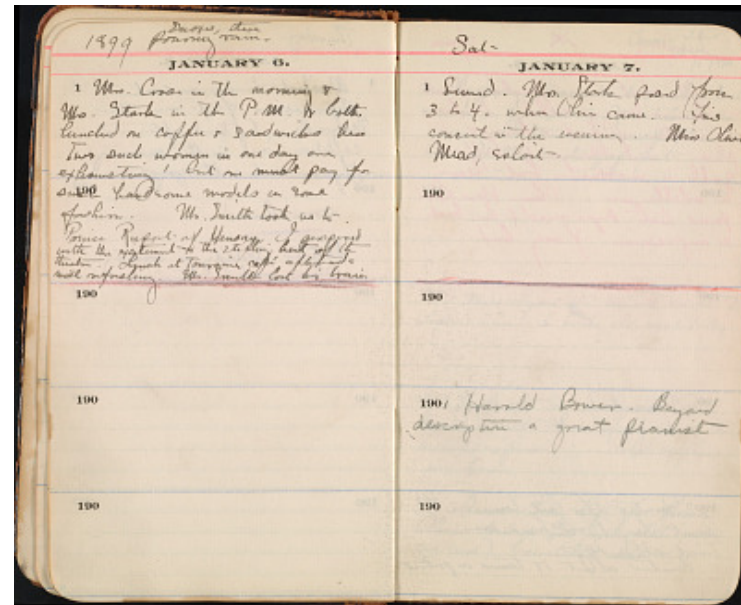 1899 then
pouring rain.
JANUARY 6.
1 Mrs. Cross in the morning &
Mrs. Stark in the P.M. & both
lunched on coffee & sandwiches here
Two such women in one day are
exhausting! but one must pay for
such handsome models in some
190
fashion. Mr. Smith took us to
Report of
with the
theatre. Lunch at
most refreshing. Mr. Smith lost his train
190
190
190
Sat-
JANUARY 7.
1 Mrs. Stark posed from
3 to 4. when Olive came. Fine
concert in the evening. Miss Olive
Mead, soloist-
190
190
1901 Harold Bowen. Beyond
description a great pianist
190